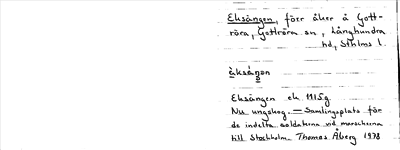 Eksängen, förr åker å Gott-
röra, Gottröra sn, Långhundra
hd, Sthlms l.
èksáŋən
Eksängen ek 1115g.
Nu ungskog. — Samlingsplats för
de indelta soldaterna vid marscherna
till Stockholm. Thomas Åberg 1978